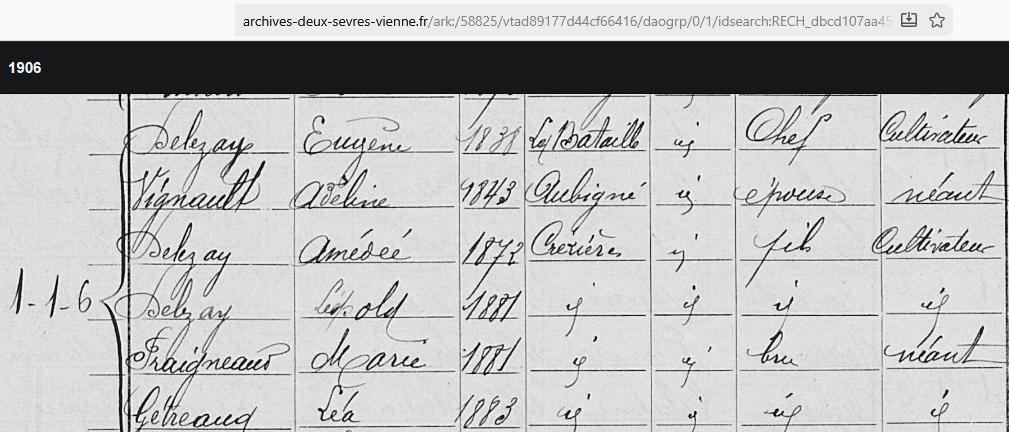 archives-deux-sevres-vienne.fr/ark:/58825/vtad89177d44cf66416/daogrp/0/1/idsearch:RECH_dbcd107aa45
1906
Delezay Eugène 1838 La Bataille id Chef Cultivateur
Vignault Adéline 1843 Aubigné id épouse néant
Delezay Amédée 1872 Crezières id fils Cultivateur
1-1-6 Delezay Léopold 1881 id id id id
Fraigneaud Marie 1881 id id bru néant
Getreaud Léa 1883 id id id id